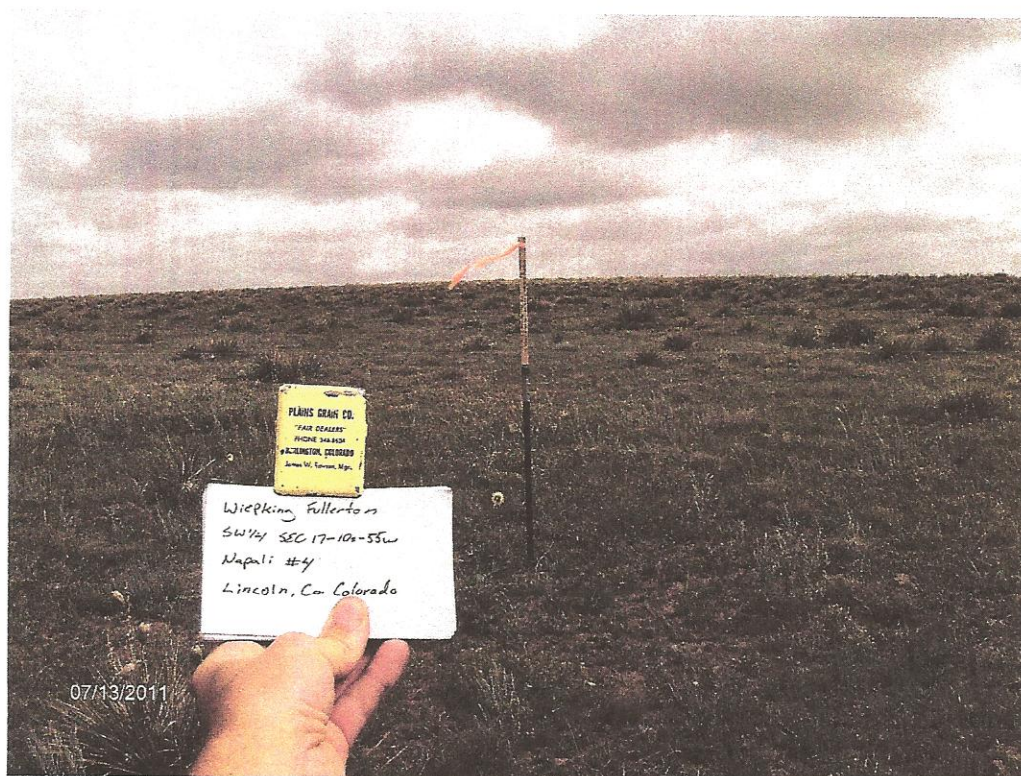 PLAINS GRAIN CO.
"FAIR DEALERS"
PHONE
BURLINGTON, COLORADO
James W. Mgr.
Wiepking Fullerton
SW 1/4 SEC 17-10s-55w
Napali #4
Lincoln, Co Colorado
07/13/2011